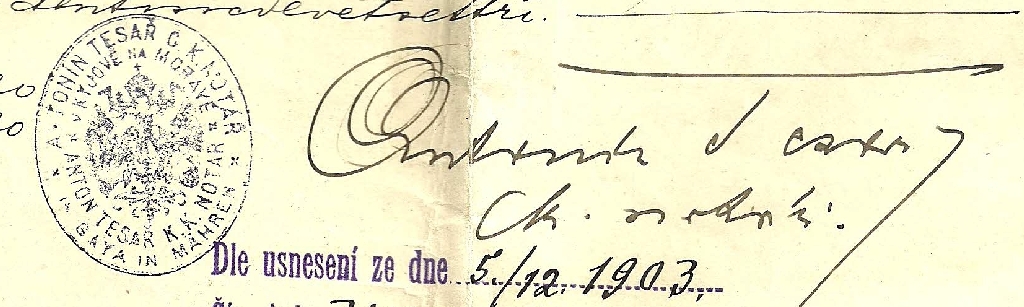 ANTONÍN TESAŘ C. K. NOTÁŘ
V KYJOVĚ NA MORAVĚ
ANTON TESAŘ K. K. NOTAR
IN GAYA IN MÄHREN
Antonín Tesař
ck. notář.
Dle usnesení ze dne 5./12. 1903.